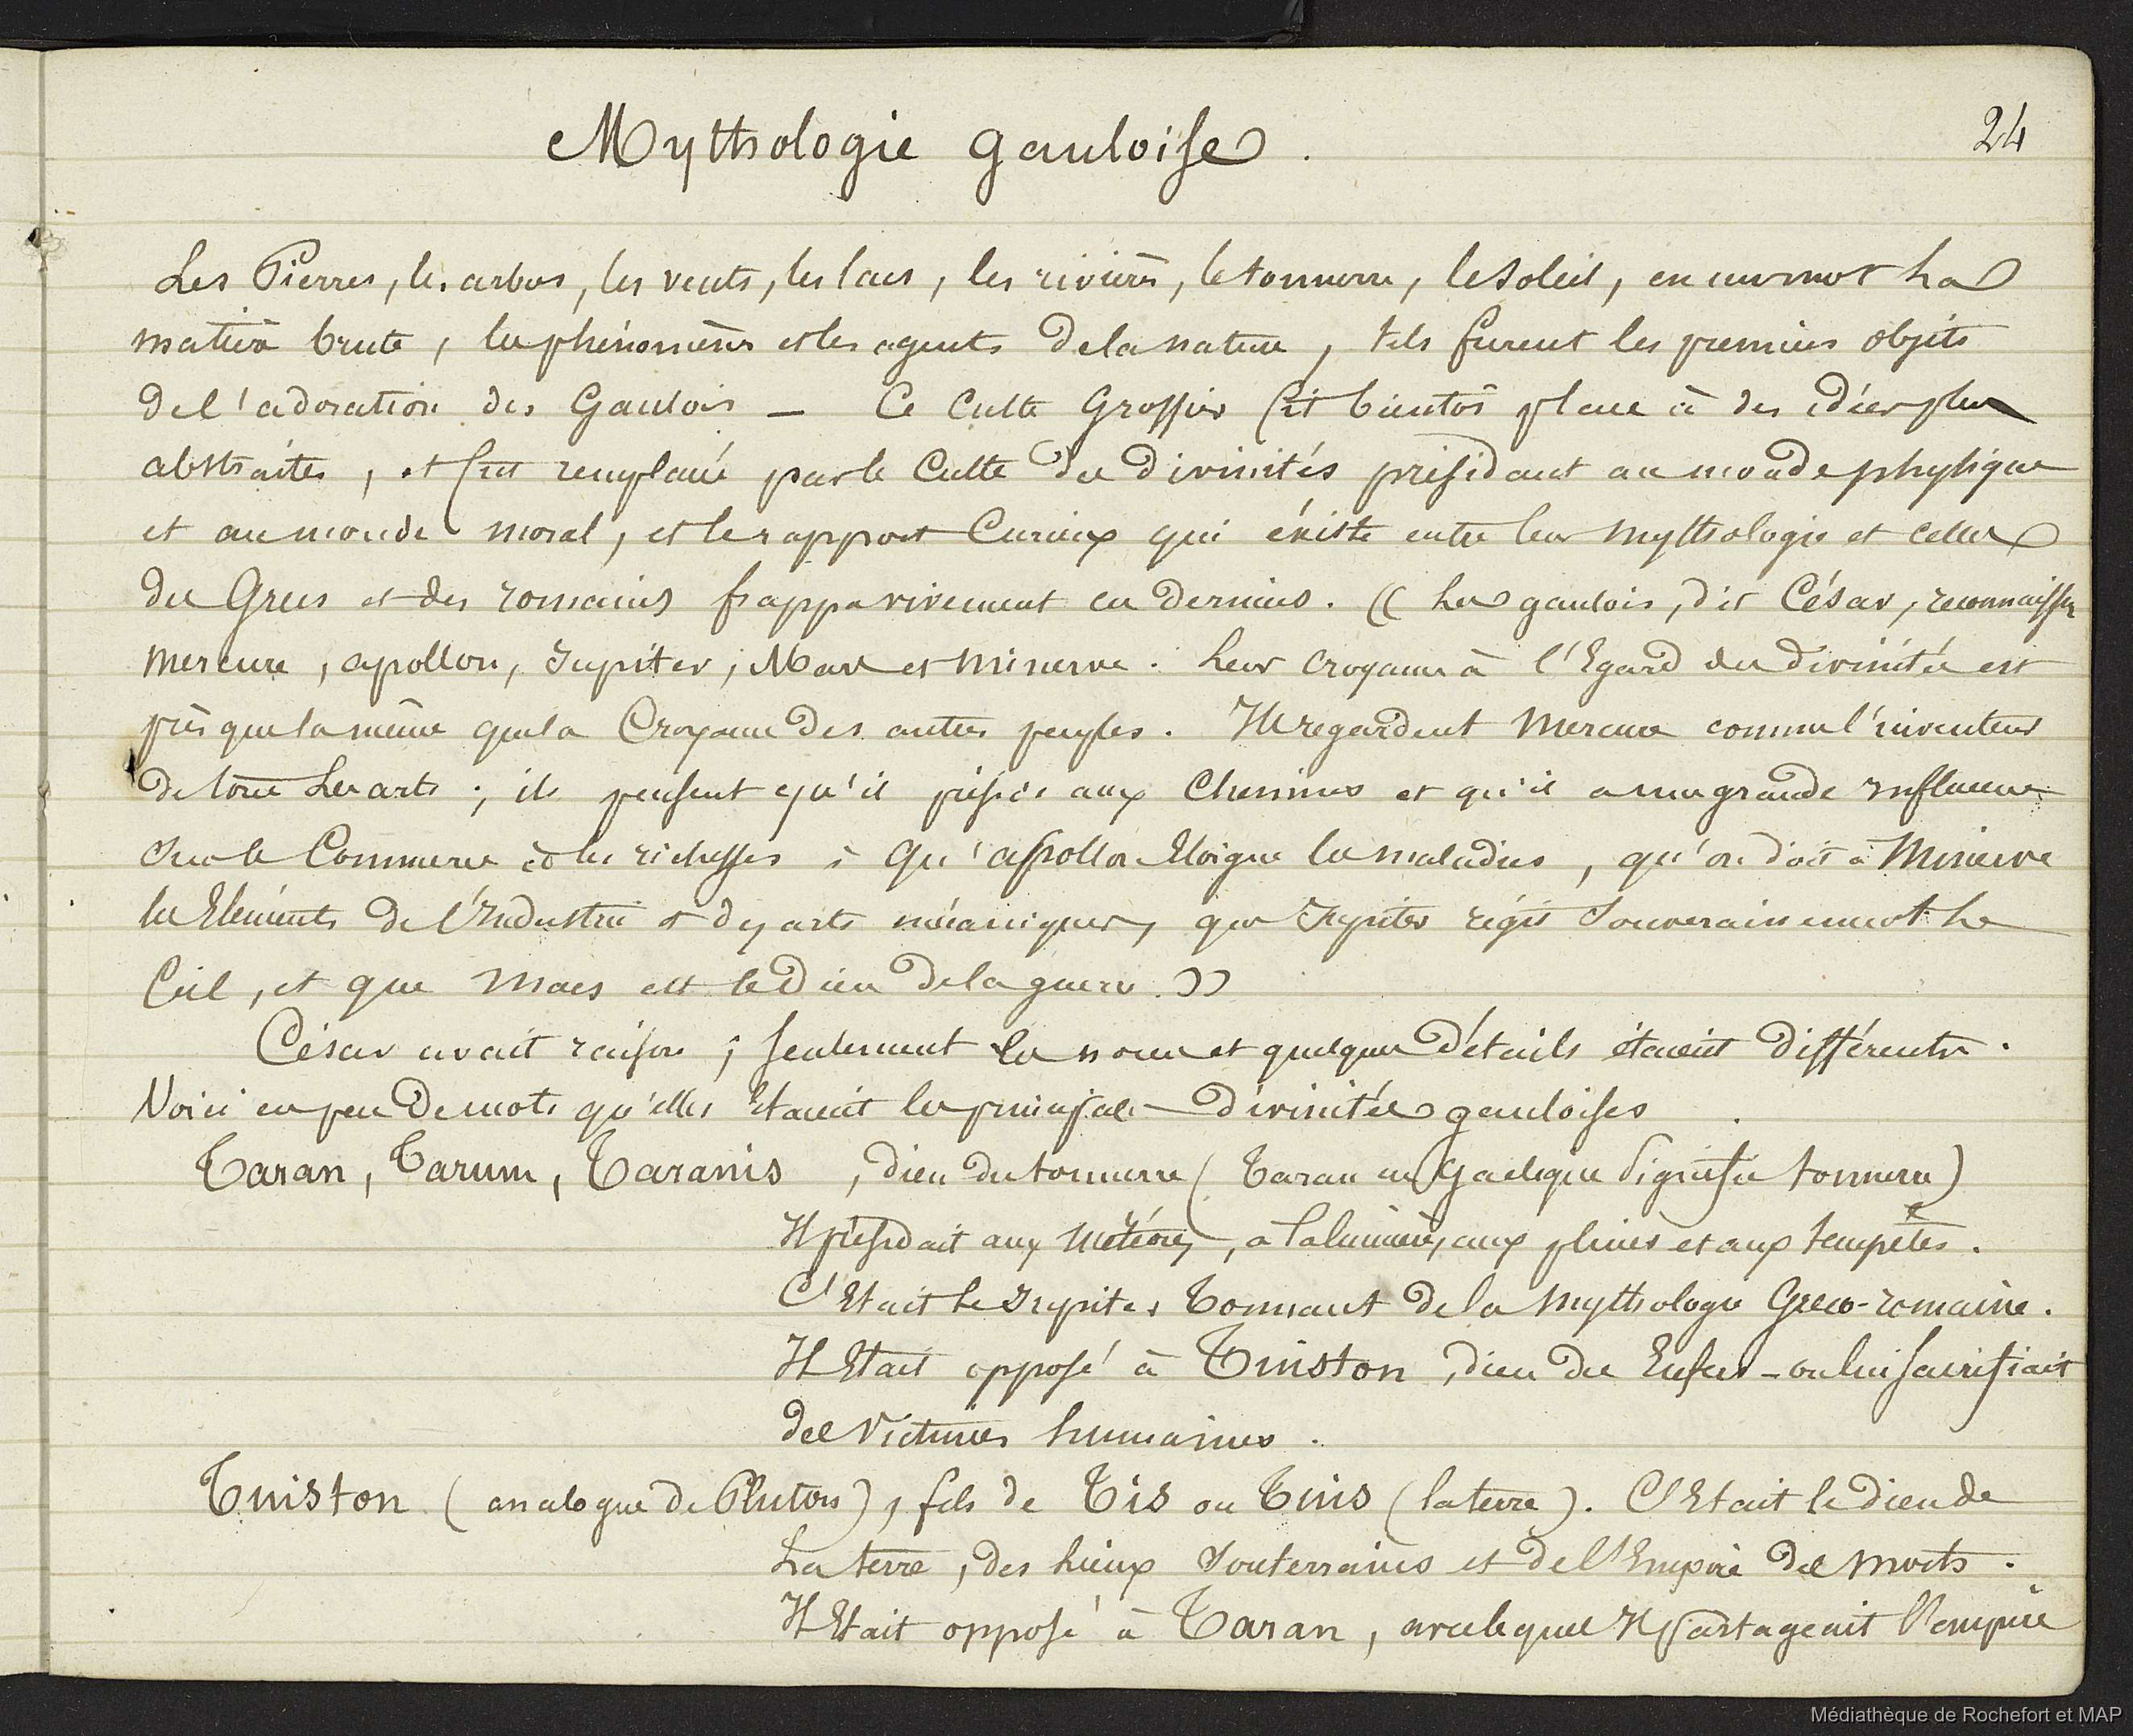 Mythologie gauloise.
24
Les Pierres, les arbres, les vents, les lacs, les rivières, le tonnerre, le soleil, en un mot La
matière brute, les phénomènes et les agents de la nature, tels furent les premiers objets
de l'adoration des Gaulois — Ce Culte Grossier fit bientôt place à des idées plus
abstraites, et fut remplacé par le Culte des divinités présidant au monde physique
et au monde moral, et le rapport Curieux qui éxiste entre leur Mythologie et celles
des Grecs et des romains frappa vivement ces derniers. « Les gaulois, dit César, reconnaissent
Mercure, apollon, Jupiter, Mars et Minerve. Leur croyance à l'Egard des divinités est
présque la même que la Croyance des autres peuples. Ils regardent Mercure comme l'inventeur
de tous Les arts ; ils pensent qu'il préside aux Chemins et qu'il a une grande influence
Sur le Commerce et les richesses ; Qu'apollon Eloigne les maladies, qu'on doit à Minerve
les Elements de l'Industrie et des arts mécaniques, que Jupiter régit Souverainement Le
Ciel, et que Mars est le Dieu de la guerre. »
César avait raison ; seulement les noms et quelques Détails étaient différents.
Voici en peu de mots qu'elles Etaient les principales divinités gauloises.
Taran, Tarum, Taranis, dieu du tonnerre (Taran en Gaelique signifie tonnerre)
Il présidait aux Météores, à la lumière, aux pluies et aux tempêtes.
C'Etait Le Jupiter Tonnant de la Mythologie Greco-romaine.
Il Etait opposé à Tuiston, dieu des Enfers - on lui sacrifiait
des Victimes humaines.
Tuiston (analogue de Pluton), fils de Tis ou Tuis (la terre). C'Etait le dieu de
La terre, des Lieux Souterrains et de l'Empire des morts.
Il Etait opposé à Taran, avec lequel Il partageait l'empire
Médiathèque de Rochefort et MAP